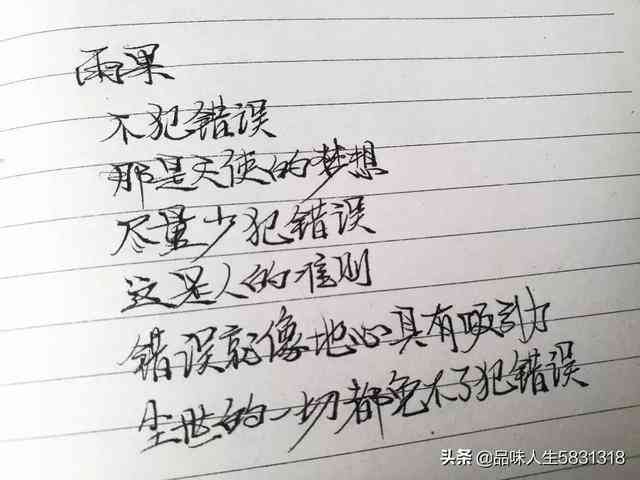 雨果
不犯错误
那是天使的梦想
尽量少犯错误
这是人的准则
错误就像地心具有吸引力
尘世的一切都免不了犯错误
头条 @品味人生5831318